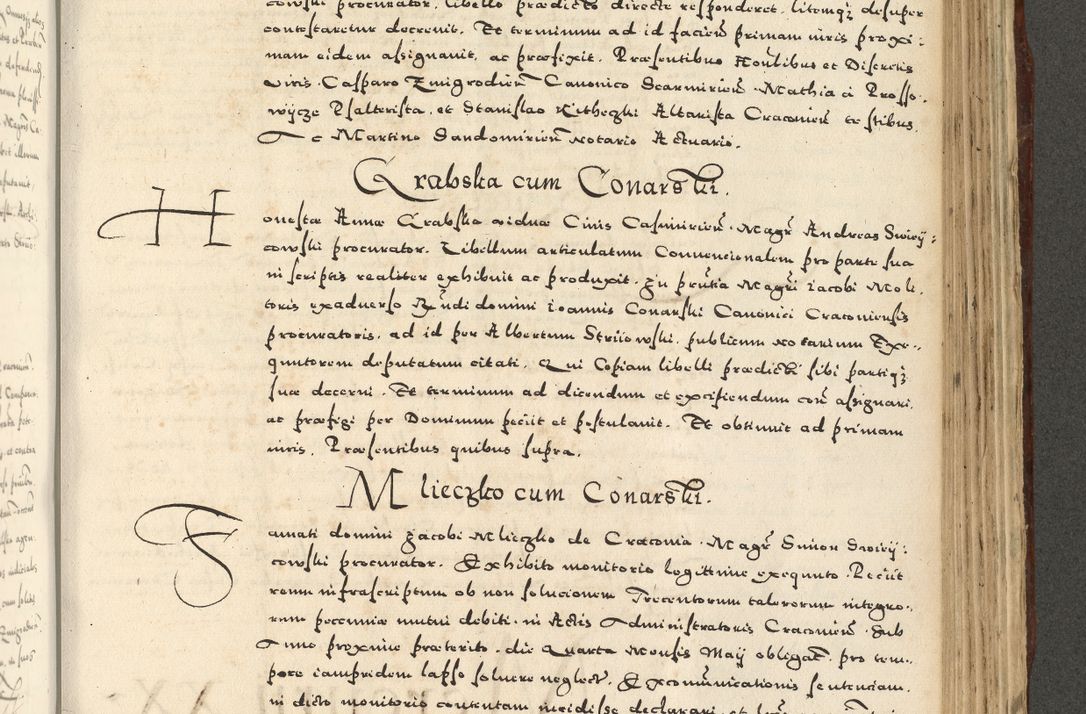 cowski procurator, libello prædicto directe responderet, litemqz desuper
contestaretur decrevit. Et terminum ad id faciēn primam iuris proxi:
mam eidem assignavit, ac præfixit. Præsentibus Honlibus et Discretis
viris Casparo Zmigrodien̄ Canonico Scarmirien̄ Mathia à Prosso.
wycze Psalterista, et Stanislao Kitheczki Altarista Cracovien̄ testibus.
Ac Martino Sandomirien̄ Notario Actuario.
Grabska cum Conarski.
Honestæ Annæ Grabska viduæ Civis Casimirien̄ Magr̄ Andreas Swiery:
cowski procurator. Libellum articulatum Convencionalem pro parte sua
in scriptis realiter exhibuit ac produxit. In prn̄tia Magr̄i Iacobi Moli.
toris ex adverso Rn̄di domini Ioannis Conarski Canonici Cracoviensis
procuratoris, ad id per Albertum Striiowski, publicum Notarium Exe.,
quutorem deputatum citati. Qui Copiam libelli prædicti sibi partiqz
suæ decerni. Et terminum ad dicendum et excipiendum con̄ assignari.
ac præfigi per Dominum peciit et postulavit. Et obtinuit ad primam
iuris. Præsentibus quibus supra.
Mlieczko cum Conarski.
Famati domini Jacobi Mlieczko de Cracovia Magr̄ Simon Swiery:
cowski procurator. Exhibito monitorio legittime exequuto. Peciit
reum infrascriptum ob non solucionem Trecentorum talerorum integro.,
rum pecuniæ mutui debiti in Actis Administratoris Cracovien̄ Sub
Anno proxime præterito. die Quarta Mensis Maij obligat̄. pro tem.,
pore iampridem lapso solvere neglect̄. Excom̄unicationis sentenciam.
in dicto monitorio contentam incidisse declarari, et